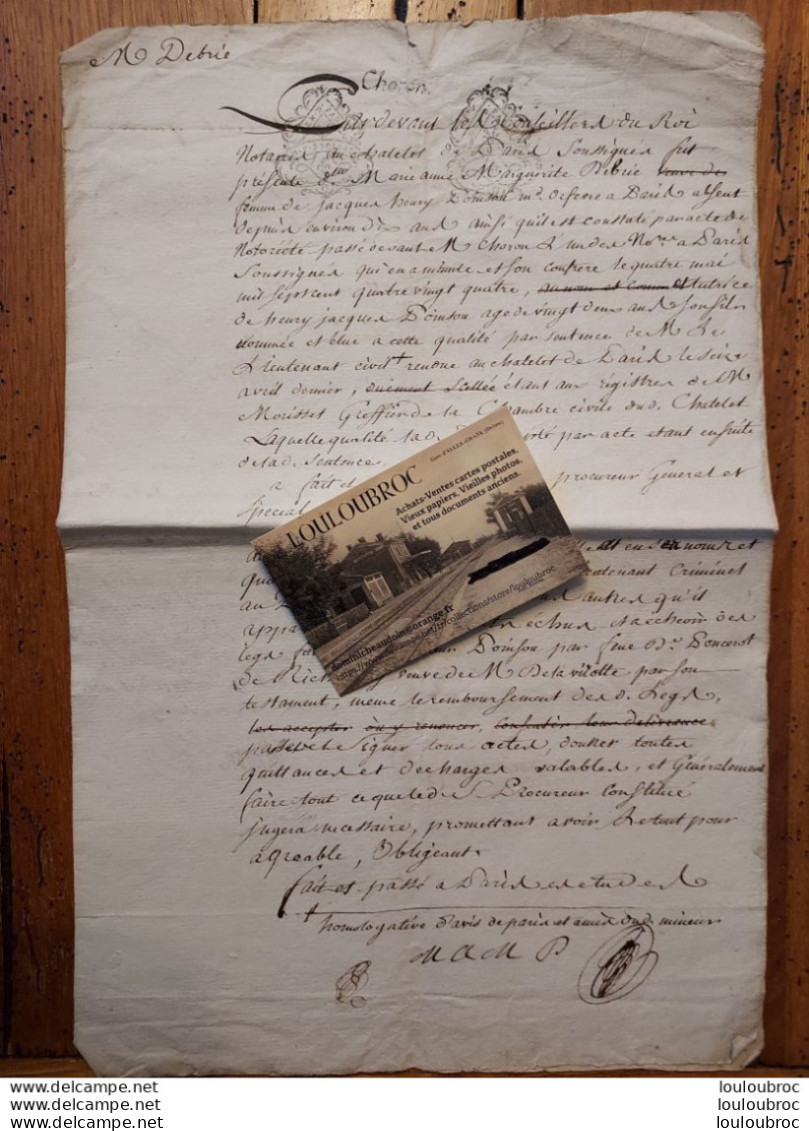 M Debrie
Choron
Pardevant les Conseillers du Roi
Notaires au chatelet de Paris soussignés fut
présente dme Marie anne Marguerite Debrie veuve de
femme de jacques henry Poinson md. de fer a Paris absent
depuis environ dix ans ainsi qu'il est constaté par acte de
Notoriété passé devant M Choron L'un des Nores a Paris
Soussignés qui en a minute et son confrere le quatre mai
mil sept cent quatre vingt quatre, au nom et comme et tutrice
de henry jacques Poinson age de vingt deux ans son fils
nommée et élue a cette qualité par sentence de M Le
Lieutenant civil + rendue au chatelet de Paris le seize
avril dernier, duement scellée étant aux régistres de M
Morisset Greffier de la Chambre civile dud. Chatelet
Laquelle qualité lad. D par acte etant ensuite
de lad. Sentence.
a fait et procureur General et
Special
LOULOUBROC
Achats-Ventes cartes postales,
Vieux papiers, Vieilles photos,
et tous documents anciens.
nom et
qu Lieutenant Criminel
au autres qu'il
appa échus et acheoir des
legs fa Poinson par feue De. Poncerot
de Rich veuve de M Delavilotte par son
testament, meme le remboursement des d. Legs,
les accepter ou y renoncer, consentir leur delivrance
passer et Signer tous actes, donner toutes
quittances et decharges valables, et Généralement
faire tout ce que led. S. Procureur Constitué
jugera nécessaire, promettant avoir le tout pour
agreable, Obligeant
fait et passé a Paris es etudes
+ homologative d'avis de parens et amis dud. mineur
M A M D
louloubroc
louloubroc
louloubroc